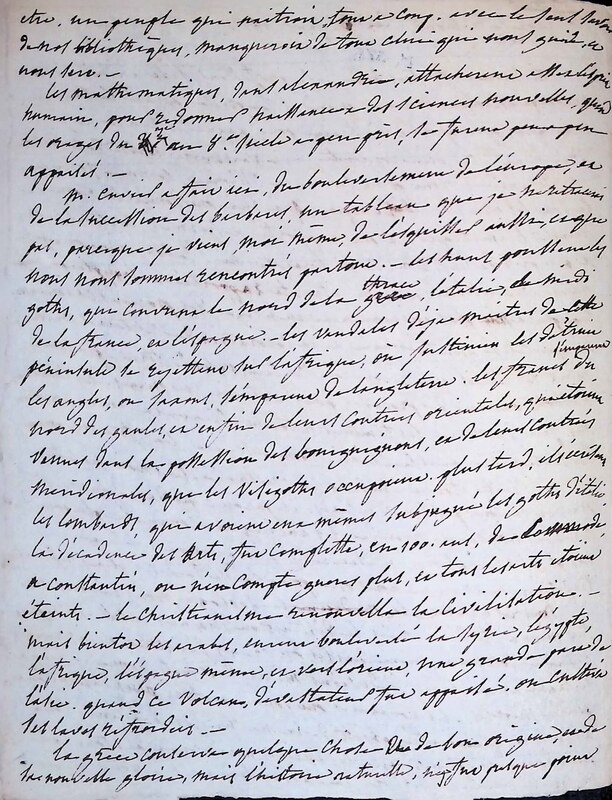 etre, un peuple qui naitroit, tout a coup, avec le seul
de nos bibliothèques, manqueroit de tout celui qui nous guide, et
nous sert. —
Les mathematiques, dans alexandrie, attacherent
humain, pour redonner naissance a des sciences nouvelles, quand
les orages du au 8.me siecle a peu près, se furent peu a peu
appaisés. —
M. Cuvier a fait ici, du boulversement de l'europe, et
de la succession des barbares, un tableau que je ne retracerai
pas, parceque je viens, moi même, de l'esquisser aussi, et que
nous nous sommes rencontrés partout. — les huns poussent les
goths, qui couvrent le nord de la thrace, l'italie, le midi
de la france, et l'espagne. — les vandales déja maitres de cette
péninsule se rejettent sur l'afrique, où justinien les détruit
les angles, ou saxons, s'emparent de l'angleterre. les francs du
s'emparent
nord des gaules, et enfin de leurs contrées orientales, qui étoient
venues dans la possession des bourguignons, et de leurs contrées
méridionales, que les Visigoths occupoient. plus tard,
les lombards, qui avoient eux mêmes subjugué les goths d'italie
la décadence des arts, fut complette, en 100. ans, de
a constantin, on n'en compte gueres plus, et tous les arts étoient
éteints. — le christianisme renouvella la civilisation. —
mais bientot les arabes, eurent boulversé la syrie, l'égypte,
l'afrique, l'espagne même, et vers l'orient, une grande part de
l'asie. quand ce volcan dévastateur fut appaisé, on cultiva
ses laves réfroidies. —
la grèce conserva quelque chose de son origine, et de
sa nouvelle gloire, mais l'histoire naturelle, n'y fut presque point